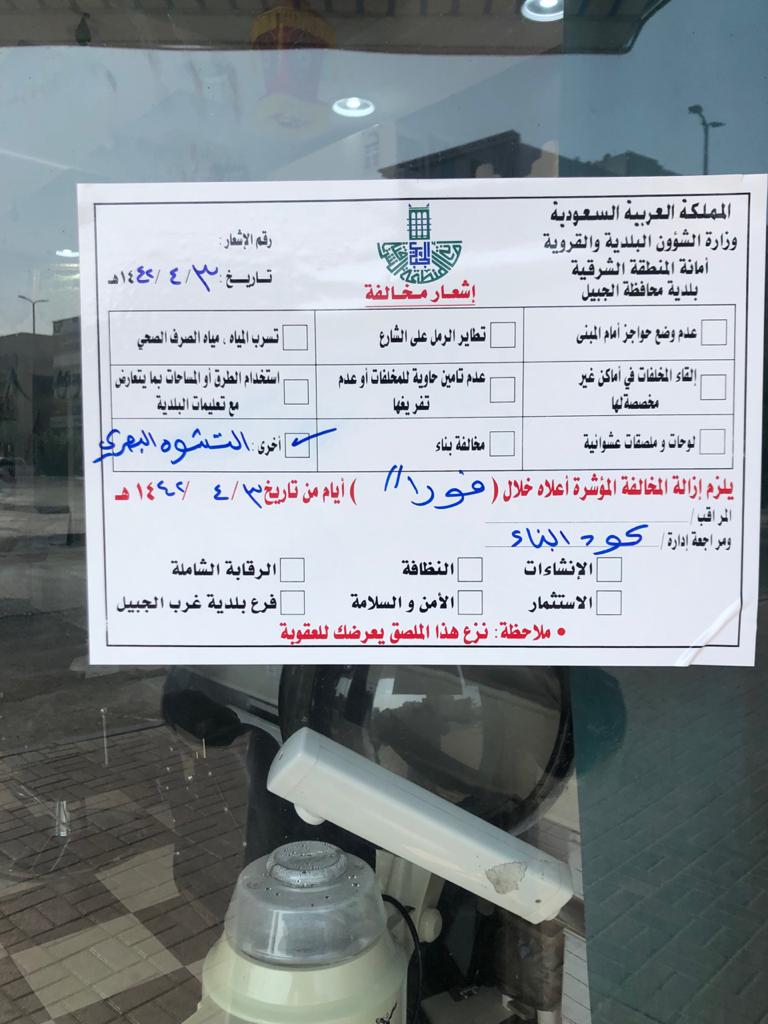 المملكة العربية السعودية
وزارة الشؤون البلدية والقروية
أمانة المنطقة الشرقية
بلدية محافظة الجبيل
رقم الإشعار :
تاريخ : ٣ / ٤ / ١٤٤٢هـ
إشعار مخالفة
عدم وضع حواجز أمام المبنى
تطاير الرمل على الشارع
تسرب المياه ، مياه الصرف الصحي
إلقاء المخلفات في أماكن غير
مخصصة لها
عدم تامين حاوية للمخلفات أو عدم
تفريغها
استخدام الطرق أو المساحات بما يتعارض
مع تعليمات البلدية
لوحات و ملصقات عشوائية
مخالفة بناء
أخرى : التشوه البصري
يلزم إزالة المخالفة المؤشرة أعلاه خلال ( فورا" ) أيام من تاريخ ٣ / ٤ / ١٤٤٢ هـ
المراقب /
ومراجعة إدارة / كود البناء
الإنشاءات
النظافة
الرقابة الشاملة
الاستثمار
الأمن و السلامة
فرع بلدية غرب الجبيل
• ملاحظة : نزع هذا الملصق يعرضك للعقوبة